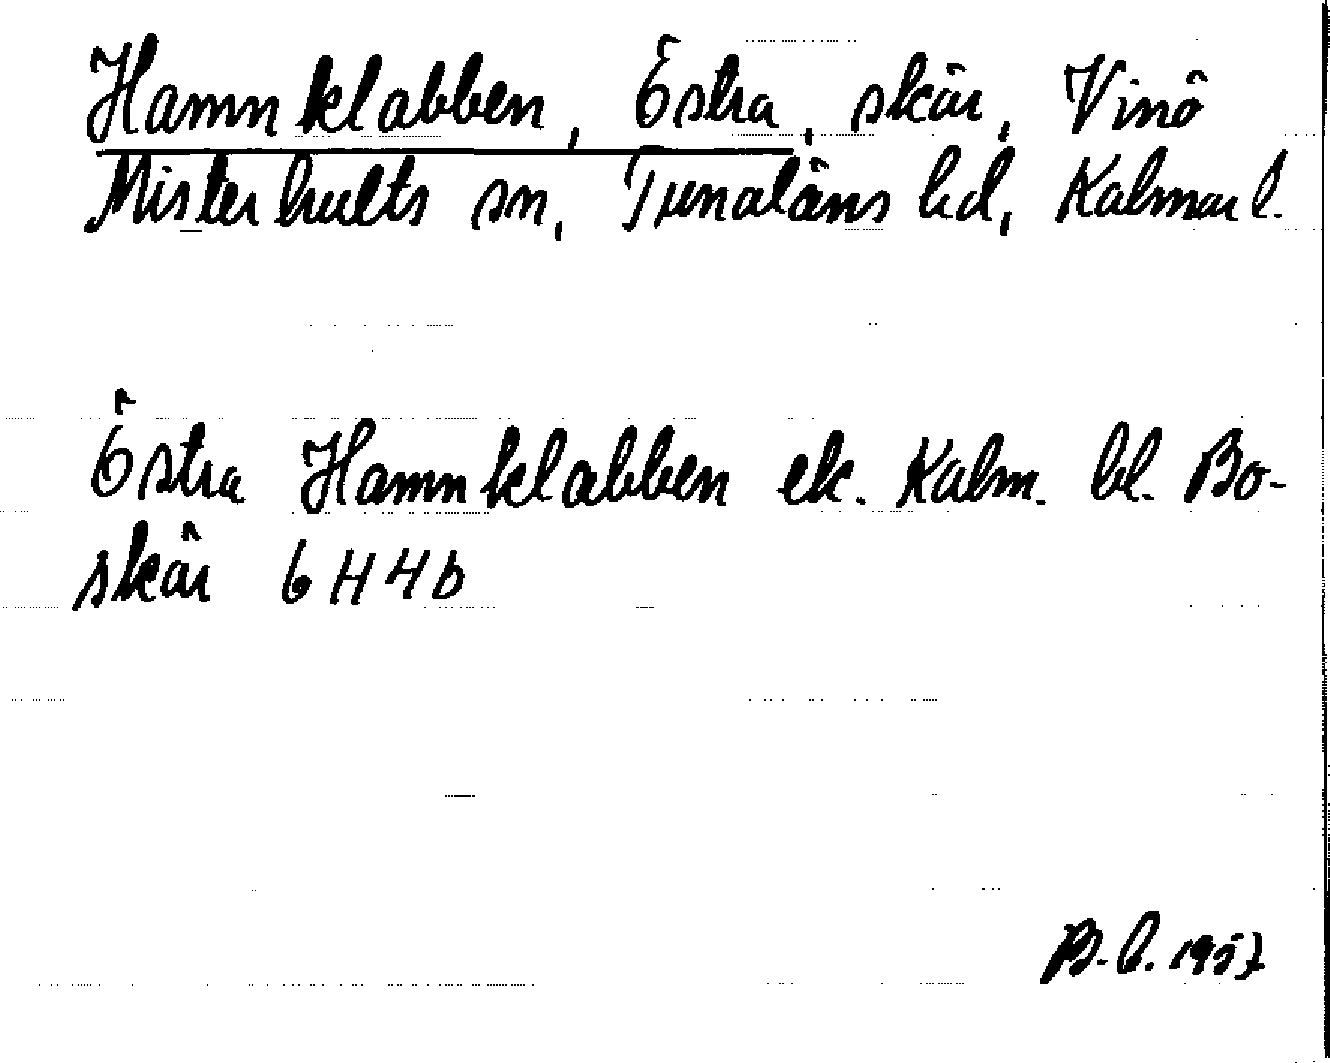 Hamnklabben, Östra, skär, Vinö
Misterhults sn, Tunaläns hd, Kalmar l.
Östra Hamnklabben ek. Kalm. bl. Bo-
skär 6H4b
B.L. 1957